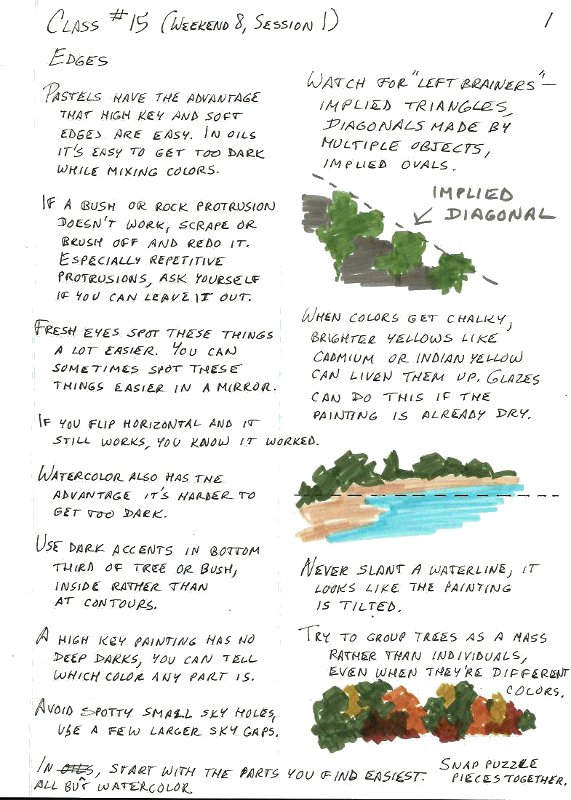 CLASS #15 (WEEKEND 8, SESSION 1)
1
EDGES
PASTELS HAVE THE ADVANTAGE
THAT HIGH KEY AND SOFT
EDGES ARE EASY. IN OILS
IT'S EASY TO GET TOO DARK
WHILE MIXING COLORS.
IF A BUSH OR ROCK PROTRUSION
DOESN'T WORK, SCRAPE OR
BRUSH OFF AND REDO IT.
ESPECIALLY REPETITIVE
PROTRUSIONS, ASK YOURSELF
IF YOU CAN LEAVE IT OUT.
FRESH EYES SPOT THESE THINGS
A LOT EASIER. YOU CAN
SOMETIMES SPOT THESE
THINGS EASIER IN A MIRROR.
IF YOU FLIP HORIZONTAL AND IT
STILL WORKS, YOU KNOW IT WORKED.
WATERCOLOR ALSO HAS THE
ADVANTAGE IT'S HARDER TO
GET TOO DARK.
USE DARK ACCENTS IN BOTTOM
THIRD OF TREE OR BUSH,
INSIDE RATHER THAN
AT CONTOURS.
A HIGH KEY PAINTING HAS NO
DEEP DARKS, YOU CAN TELL
WHICH COLOR ANY PART IS.
AVOID SPOTTY SMALL SKY HOLES,
USE A FEW LARGER SKY GAPS.
WATCH FOR "LEFT BRAINERS"—
IMPLIED TRIANGLES,
DIAGONALS MADE BY
MULTIPLE OBJECTS,
IMPLIED OVALS.
IMPLIED
DIAGONAL
WHEN COLORS GET CHALKY,
BRIGHTER YELLOWS LIKE
CADMIUM OR INDIAN YELLOW
CAN LIVEN THEM UP. GLAZES
CAN DO THIS IF THE
PAINTING IS ALREADY DRY.
NEVER SLANT A WATERLINE, IT
LOOKS LIKE THE PAINTING
IS TILTED.
TRY TO GROUP TREES AS A MASS
RATHER THAN INDIVIDUALS,
EVEN WHEN THEY'RE DIFFERENT
COLORS.
SNAP PUZZLE
PIECES TOGETHER.
IN OILS, START WITH THE PARTS YOU FIND EASIEST.
ALL BUT WATERCOLOR